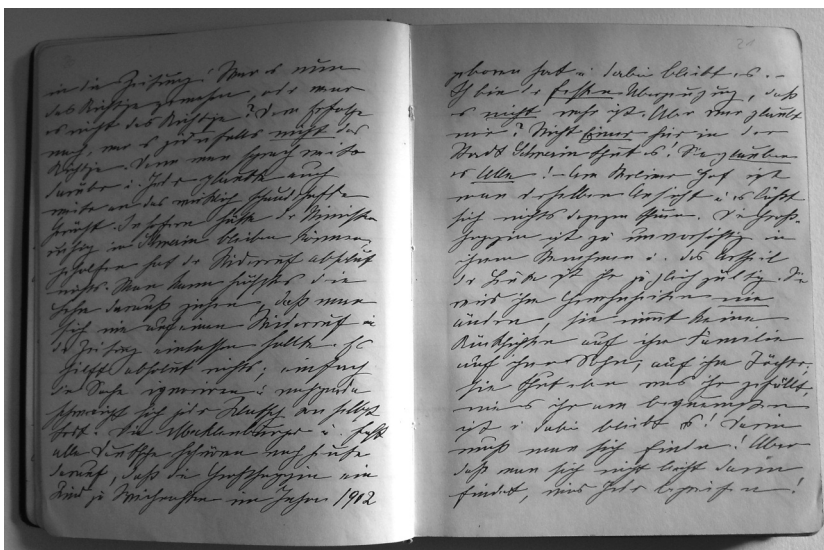 in die Zeitung! War es nun
das Richtige gewesen, oder war
es nicht das Richtige? Dem Erfolge
nach, war es jedenfalls nicht das
Richtige. Denn man sprach weiter
darüber u. Jeder glaubte auch
weiter an das wirklich
Gerücht. Insofern hätte der Minister
ruhig in Schwerin bleiben können,
geholfen hat der Widerruf absolut
nichts. Man kann höchstens die
Lehre daraus ziehen, daß man
sich nie auf einen Widerruf in
der Zeitung einlassen sollte. Es
hilft absolut nichts; einfach
die Sache ignoriren u.
schweigt sich jeder Klatsch von selbst
tot. Die Mecklenburger u. fast
alle Deutsche schwören nach wie vor
darauf, daß die Großherzogin ein
Kind zu Weihnachten im Jahre 1912
geboren hat u. dabei bleibt es. –
Ich bin der festen Überzeugung, daß
es nicht wahr ist. Aber wer glaubt
mir? Nicht Einer hier in der
Stadt Schwerin thut es! Sie glauben
es Alle! – Am Berliner Hof ist
man derselben Ansicht u. es läßt
sich nichts dagegen thun. Die Groß-
herzogin ist zu unvorsichtig in
ihrem Benehmen u. das Urtheil
der Leute ist ihr ja gleichgültig. Sie
wird ihre Gewohnheiten nie
ändern, sie nimmt keine
Rücksichten auf ihre Familie
auf ihren Sohn, auf ihre Töchter;
sie thut eben was ihr gefällt,
wie es ihr am bequemsten
ist u. dabei bleibt es! Darin
muß man sich finden! Aber
daß man sich nicht leicht darin
findet, wird Jeder begreifen!